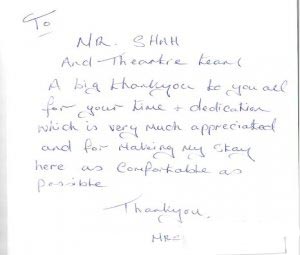 To
MR. SHAH
And Theartre team
A big thankyou to you all
for your time + dedication
which is very much appreciated
and for making my stay
here as comfortable as
possible
Thankyou.
MRS